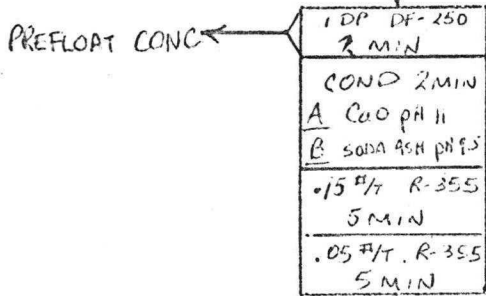 PREFLOAT CONC
1 DP DF-250
2 MIN
COND 2MIN
A CaO pH 11
B SODA ASH pH 9.5
.15 #/T R-355
5 MIN
.05 #/T. R-355
5 MIN